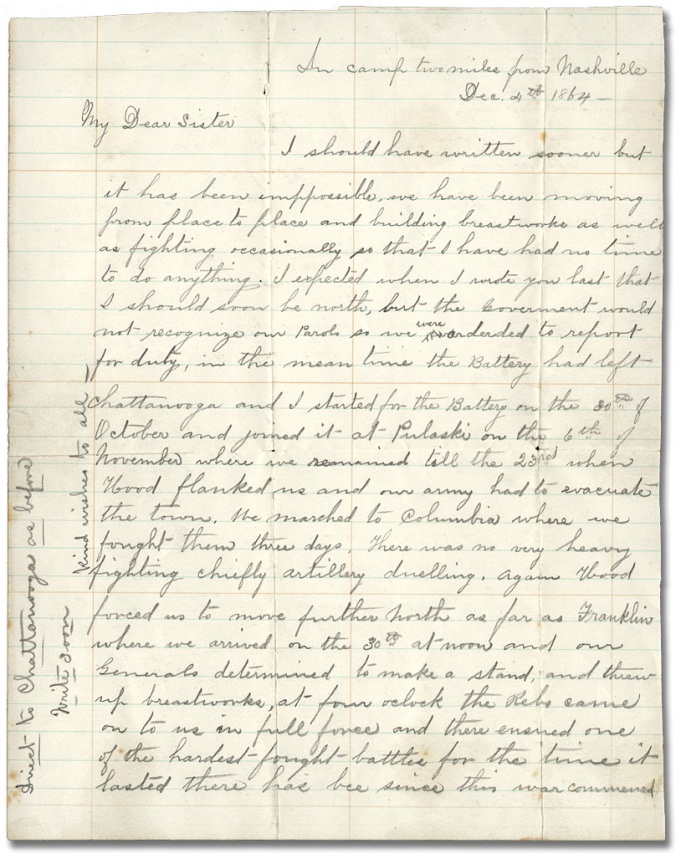 In camp two miles from Nashville
Dec. 4th 1864 —
My Dear Sister
I should have written sooner but
it has been imppossible, we have been moving
from place to place and building breastworks as well
as fighting occasionally so that I have had no time
to do anything. I expected when I wrote you last that
I should soon be north, but the Goverment would
not recognize our Parols so we were orderded to report
for duty, in the mean time the Battery had left
Chattanooga and I started for the Battery on the 30th of
October and joined it at Pulaski on the 6th of
November where we remained till the 23rd when
Hood flanked us and our army had to evacuate
the town. We marched to Columbia where we
fought them three days, There was no very heavy
fighting chiefly artillery duelling. Again Hood
forced us to move further north as far as Franklin
where we arrived on the 30th at noon and our
Generals determined to make a stand, and threw
up breastworks, at four oclock the Rebs came
on to us in full force and there ensued one
of the hardest fought battles for the time it
lasted there has bee since this war commenced
Kind wishes to all —
Write soon
Direct to Chattanooga as before